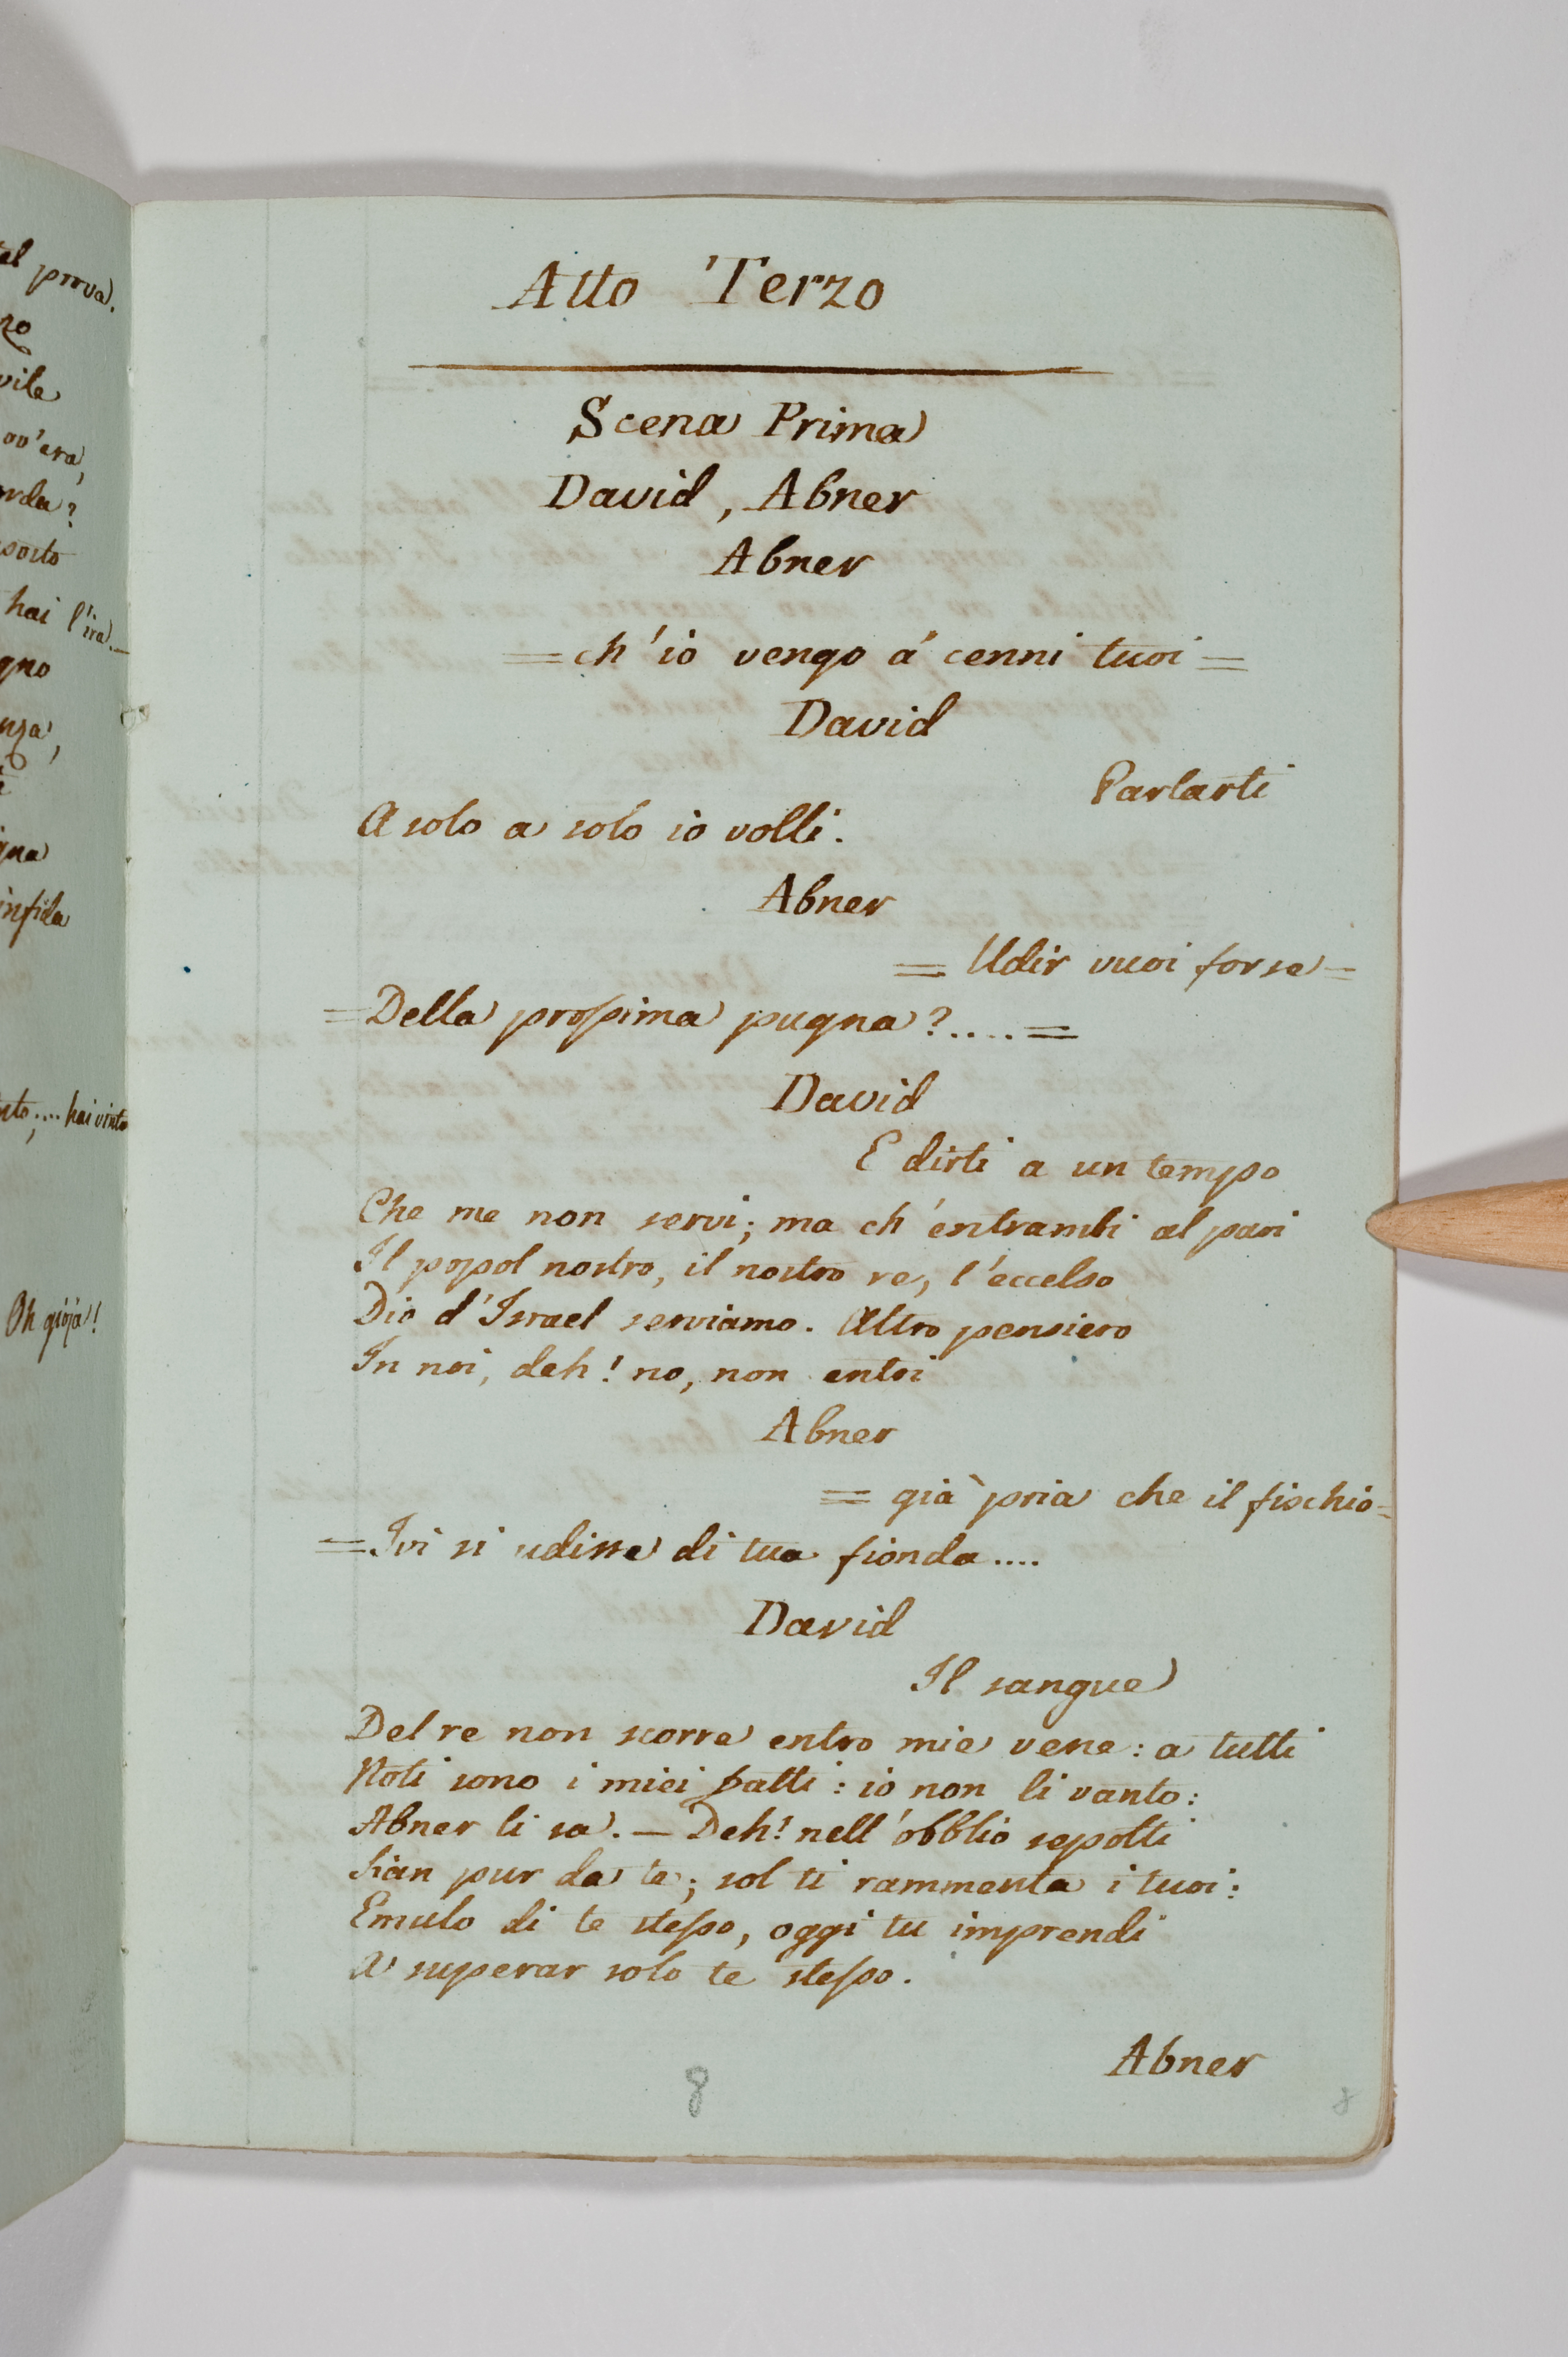 al prova.
no
vile
ov'era,
orda?
sorto
hai l'ira.—
gno
nza,
è
gna
infida
uto;.... hai vinto
Oh gioja!
Atto Terzo
Scena Prima
David, Abner
Abner
= ch'io vengo á cenni tuoi =
David
Parlarti
A solo a solo io volli.
Abner
= Udir vuoi forse =
= Della proſsima pugna?.... =
David
E dirti a un tempo
Che me non servi; ma ch'entrambi al pari
Il popol nostro, il nostro re, l'eccelso
Dio d'Israel serviamo. Altro pensiero
In noi, deh! no, non entri
Abner
= già pria che il fischio =
= Ivi si udisse di tua fionda....
David
Il sangue
Del re non scorre entro mie vene: a tutti
Noti sono i miei fatti: io non li vanto:
Abner li sa. — Deh! nell'obblio sepolti
Sian pur da te; sol ti rammenta i tuoi:
Emulo di te steſso, oggi tu imprendi
A superar solo te steſso.
Abner
8
8